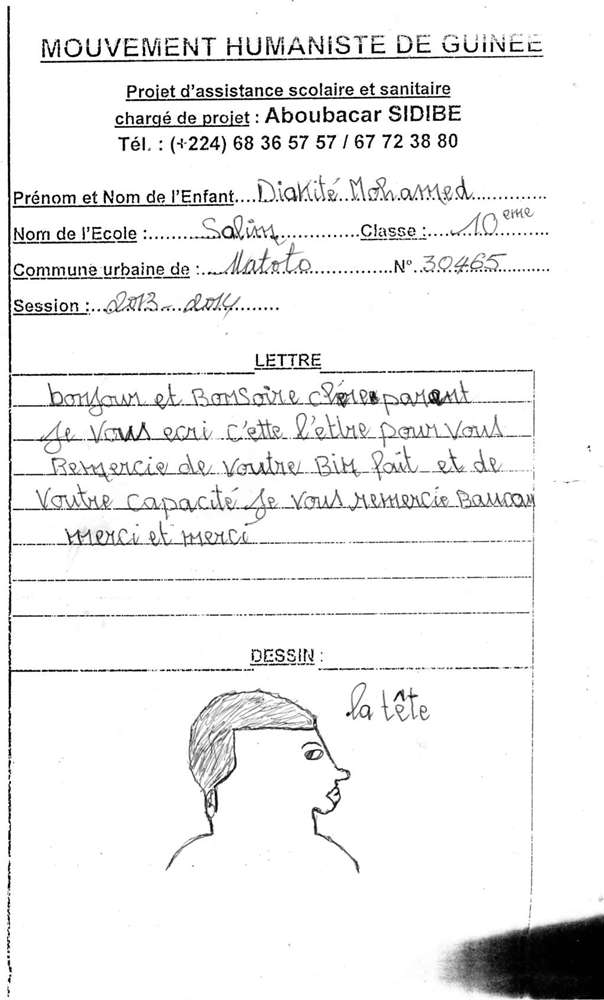 MOUVEMENT HUMANISTE DE GUINEE
Projet d'assistance scolaire et sanitaire
chargé de projet : Aboubacar SIDIBE
Tél. : (+224) 68 36 57 57 / 67 72 38 80
Prénom et Nom de l'Enfant....Diakité Mohamed
Nom de l'Ecole :......Salim......Classe :....10 eme
Commune urbaine de :..Matoto......N° 30465
Session :..2013-2014
LETTRE
bonjour et Bonsoire chère parant
Je Vous ecri c'ette l'ettre pour Vous
Remercie de Voutre Bin fait et de
Voutre capacité Je Vous remercie Baucau
merci et merci
DESSIN :
la tête